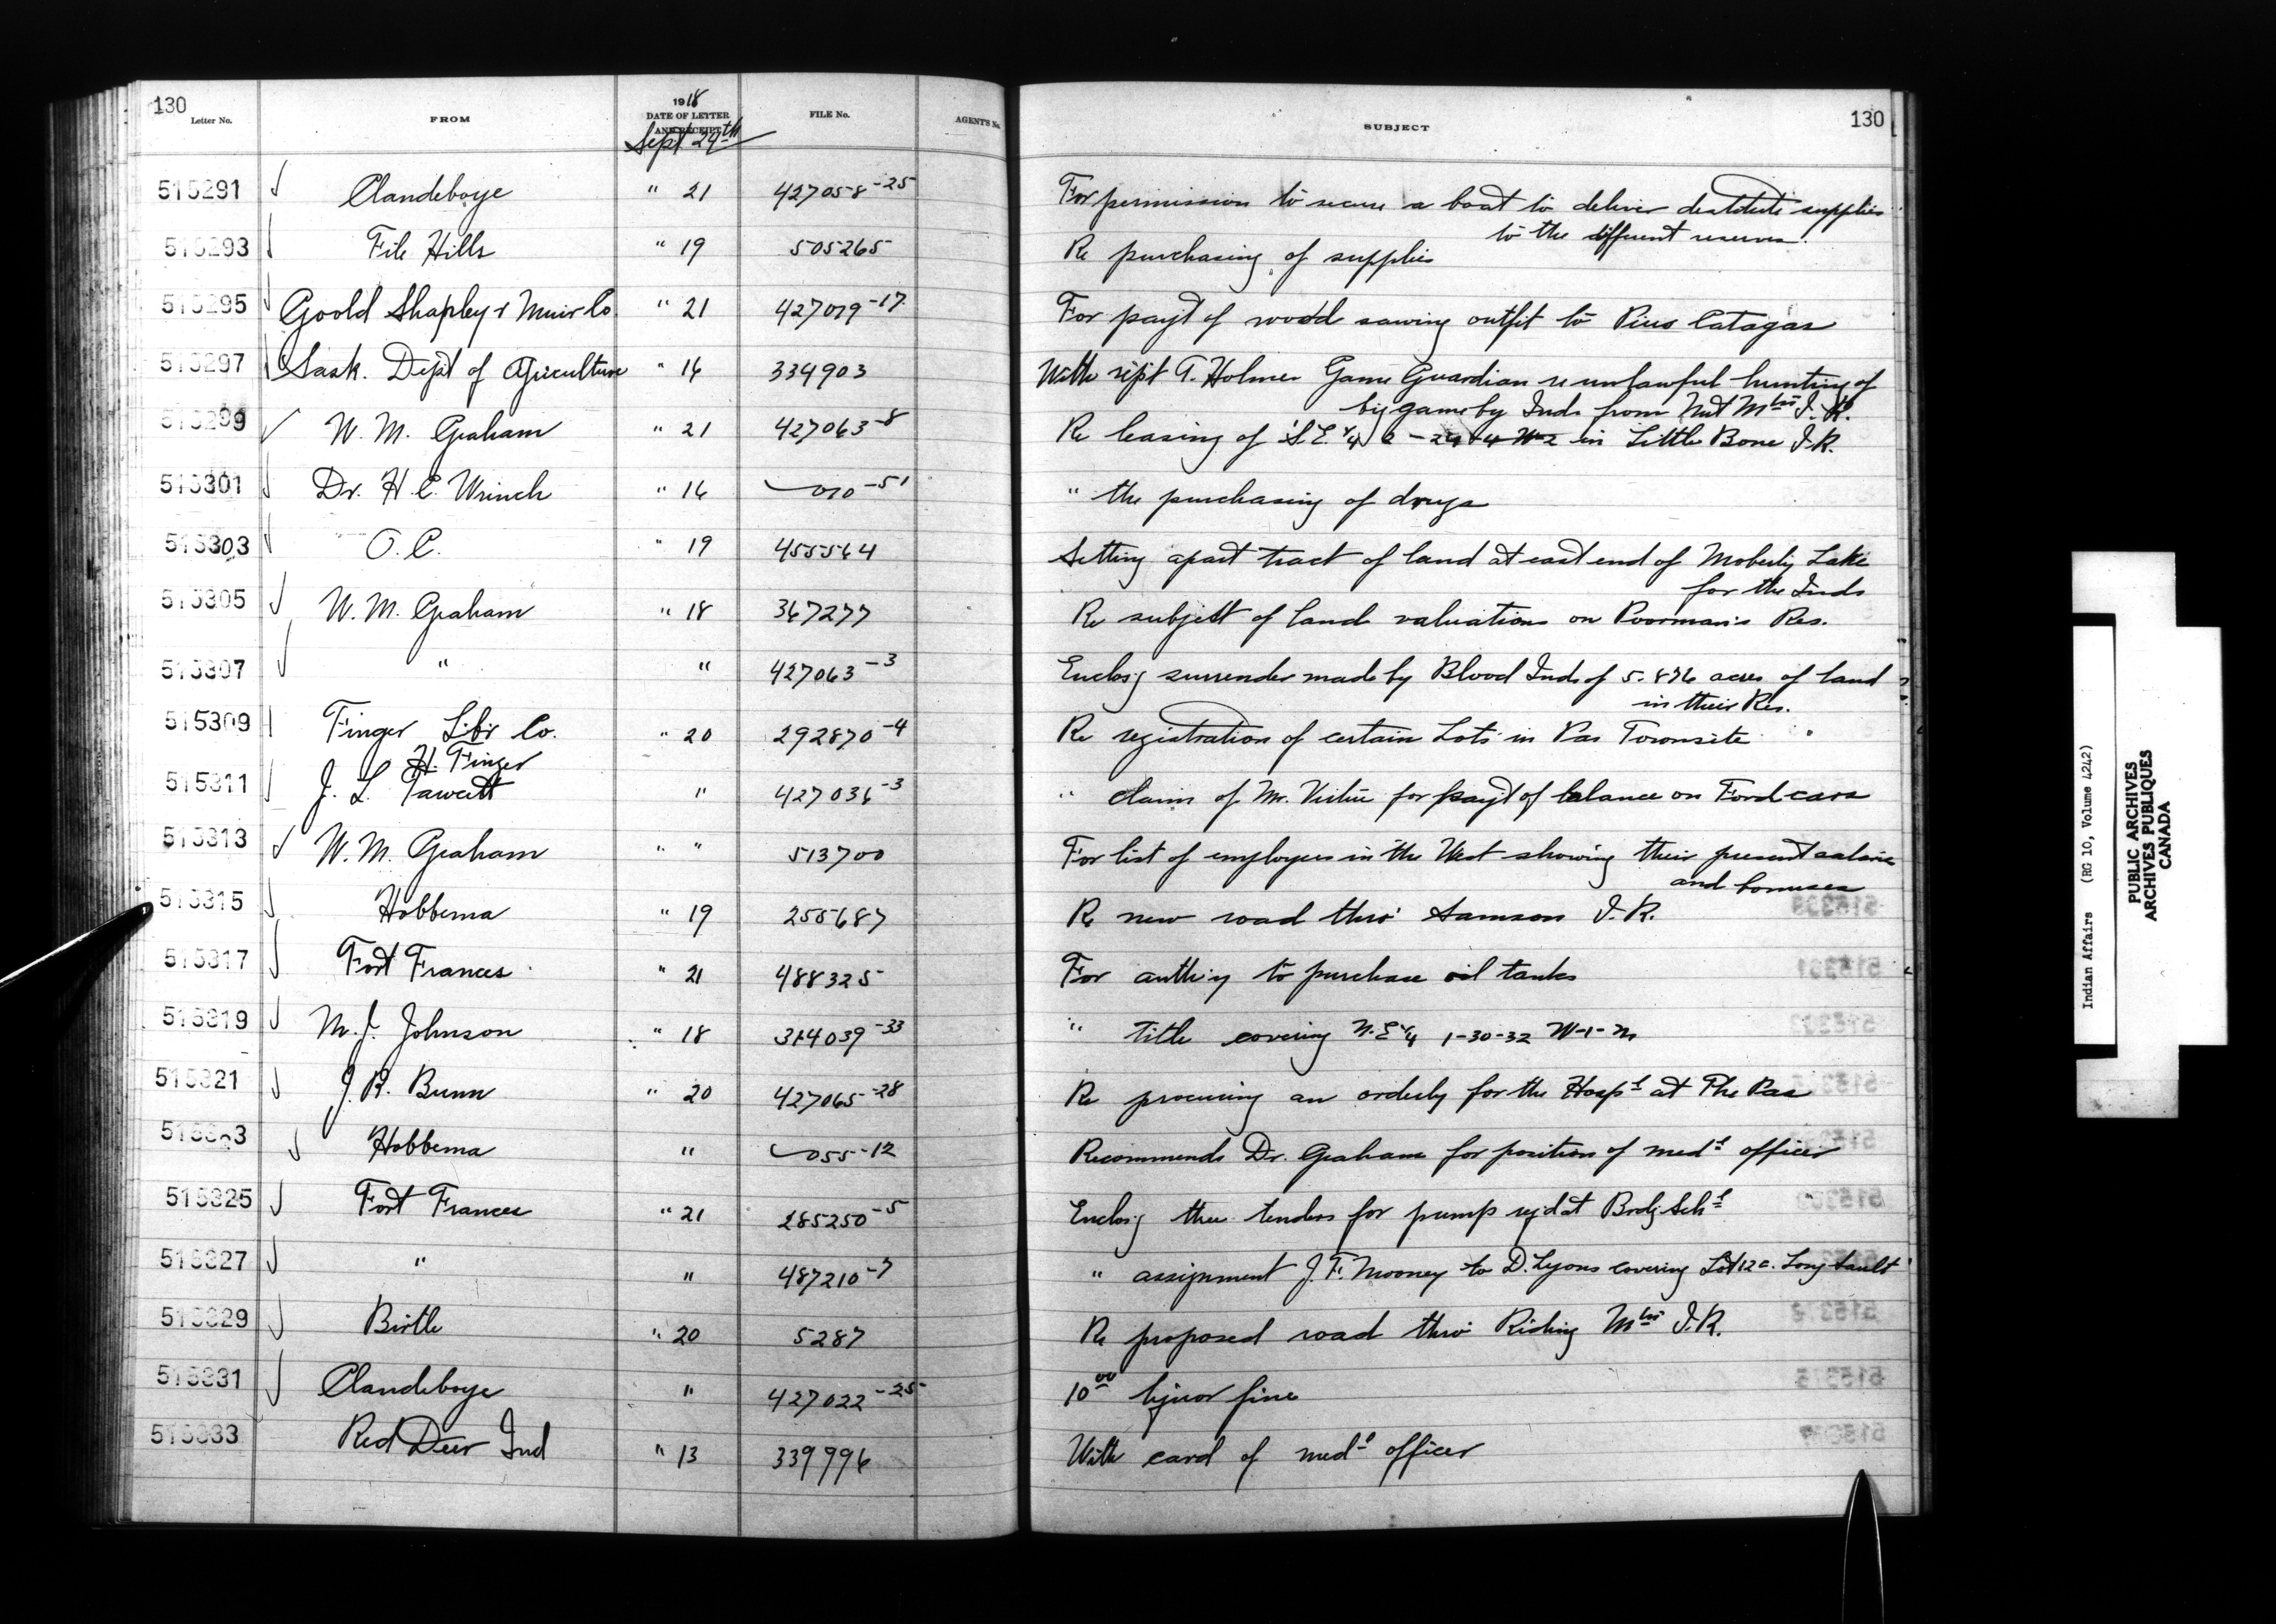 130
Letter No. FROM 1918 DATE OF LETTER AND RECEIPT FILE No. AGENT'S No. SUBJECT 130
Sept 24th
515291 Clandeboye " 21 427058-25 For permission to secure a boat to deliver destitute supplies
to the different reserves.
515293 File Hills " 19 505265 Re purchasing of supplies
515295 Goold Shapley & Muir Co. " 21 427079-17 For payt of wood sawing outfit to Pius Catagas
515297 Sask. Dept of Agriculture " 16 334903 With rept Holmes Game Guardian re unlawful hunting of
big game by Inds from Nut Mtn I.R.
515299 W. M. Graham " 21 427063-8 Re leasing of S E 1/4 in Little Bone I.R.
515301 Dr. H. C. Wrinch " 16 010-51 " the purchasing of drugs
515303 O. C. " 19 455564 Setting apart tract of land at east end of Moberly Lake
for the Inds
515305 W. M. Graham " 18 367277 Re subject of land valuations on Poorman's Res.
515307 " " 427063-3 Enclos'g surrender made by Blood Inds of 5.876 acres of land
in their Res.
515309 Finger Lbr Co. " 20 292870-4 Re registration of certain Lots in Pas Townsite
H. Finger
515311 J. L. Fawcett " 427036-3 " claim of Mr. Virtue for payt of balance on Ford cars
515313 W. M. Graham " " 513700 For list of employees in the West showing their present salaries
and bonuses
515315 Hobbema " 19 255687 Re new road thro' Samson I. R.
515317 Fort Frances " 21 488325 For auth'y to purchase oil tanks
515319 M. J. Johnson " 18 314039-33 " title covering N.E 1/4 1-30-32 W-1-M
515321 J. R. Bunn " 20 427065-28 Re procuring an orderly for the Hospl at The Pas
515323 Hobbema " 055-12 Recommends Dr. Graham for position of medl officer
515325 Fort Frances " 21 285250-5 Enclos'g three tenders for pump req'd at Brdg Schl
515327 " " 487210-7 " assignment J. F. Mooney to D. Lyons covering Lot 12 Long Sault
515329 Birtle " 20 5287 Re proposed road thro' Riding Mtn I.R.
515331 Clandeboye " 427022-25 10 00 liquor fine
515333 Red Deer Ind " 13 339996 With card of medl officer
Indian Affairs (RG 10, Volume 4242)
PUBLIC ARCHIVES
ARCHIVES PUBLIQUES
CANADA